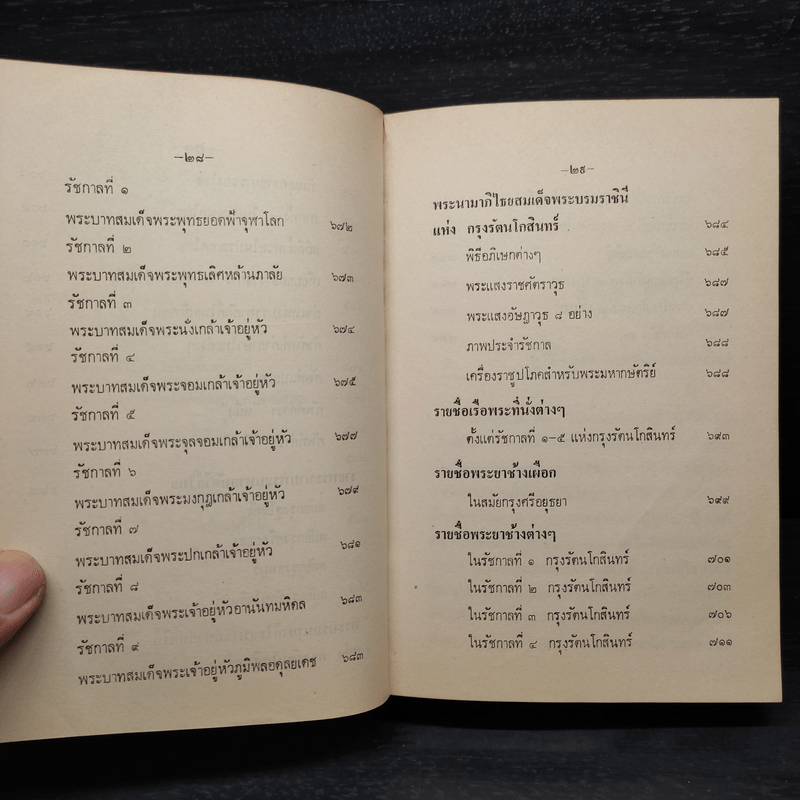 —๒๘—
รัชกาลที่ ๑
พระบาทสมเด็จพระพุทธยอดฟ้าจุฬาโลก ๖๗๒
รัชกาลที่ ๒
พระบาทสมเด็จพระพุทธเลิศหล้านภาลัย ๖๗๓
รัชกาลที่ ๓
พระบาทสมเด็จพระนั่งเกล้าเจ้าอยู่หัว ๖๗๔
รัชกาลที่ ๔
พระบาทสมเด็จพระจอมเกล้าเจ้าอยู่หัว ๖๗๕
รัชกาลที่ ๕
พระบาทสมเด็จพระจุลจอมเกล้าเจ้าอยู่หัว ๖๗๗
รัชกาลที่ ๖
พระบาทสมเด็จพระมงกุฎเกล้าเจ้าอยู่หัว ๖๗๙
รัชกาลที่ ๗
พระบาทสมเด็จพระปกเกล้าเจ้าอยู่หัว ๖๘๑
รัชกาลที่ ๘
พระบาทสมเด็จพระเจ้าอยู่หัวอานันทมหิดล ๖๘๓
รัชกาลที่ ๙
พระบาทสมเด็จพระเจ้าอยู่หัวภูมิพลอดุลยเดช ๖๘๓
—๒๙—
พระนามาภิไธยสมเด็จพระบรมราชินี
แห่ง กรุงรัตนโกสินทร์ ๖๘๔
พิธีอภิเษกต่างๆ ๖๘๕
พระแสงราชศัตราวุธ ๖๘๗
พระแสงอัษฎาวุธ ๘ อย่าง ๖๘๗
ภาพประจำรัชกาล ๖๘๘
เครื่องราชูปโภคสำหรับพระมหากษัตริย์ ๖๘๘
รายชื่อเรือพระที่นั่งต่างๆ
ตั้งแต่รัชกาลที่ ๑–๕ แห่งกรุงรัตนโกสินทร์ ๖๙๓
รายชื่อพระยาช้างเผือก
ในสมัยกรุงศรีอยุธยา ๖๙๙
รายชื่อพระยาช้างต่างๆ
ในรัชกาลที่ ๑ กรุงรัตนโกสินทร์ ๗๐๑
ในรัชกาลที่ ๒ กรุงรัตนโกสินทร์ ๗๐๓
ในรัชกาลที่ ๓ กรุงรัตนโกสินทร์ ๗๐๖
ในรัชกาลที่ ๔ กรุงรัตนโกสินทร์ ๗๑๑